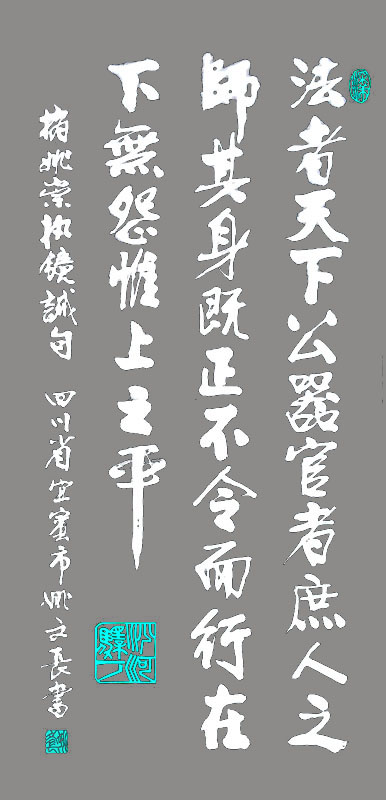 法者天下公器官者庶人之
師其身既正不令而行在
下無怨惟上之平
摘姚崇执鏡誡句 四川省宜賓市姚文長書